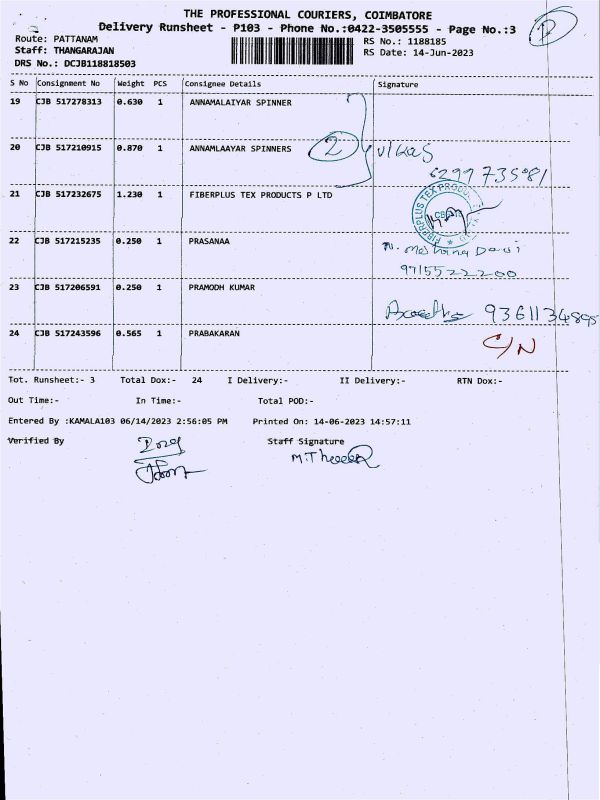 THE PROFESSIONAL COURIERS, COIMBATORE
Delivery Runsheet - P103 - Phone No.:0422-3505555 - Page No.:3
Route: PATTANAM
RS No.: 1188185
Staff: THANGARAJAN
RS Date: 14-Jun-2023
DRS No.: DCJB118818503
S No Consignment No Weight PCS Consignee Details Signature
19 CJB 517278313 0.630 1 ANNAMALAIYAR SPINNER
20 CJB 517210915 0.870 1 ANNAMLAAYAR SPINNERS 2 Vikas
6299735081
21 CJB 517232675 1.230 1 FIBERPLUS TEX PRODUCTS P LTD
FIBERPLUS TEX PRODU
22 CJB 517215235 0.250 1 PRASANAA N. Mohana Devi
9715522200
23 CJB 517206591 0.250 1 PRAMODH KUMAR
9361134895
24 CJB 517243596 0.565 1 PRABAKARAN C/N
Tot. Runsheet:- 3 Total Dox:- 24 I Delivery:- II Delivery:- RTN Dox:-
Out Time:- In Time:- Total POD:-
Entered By :KAMALA103 06/14/2023 2:56:05 PM Printed On: 14-06-2023 14:57:11
Verified By Staff Signature